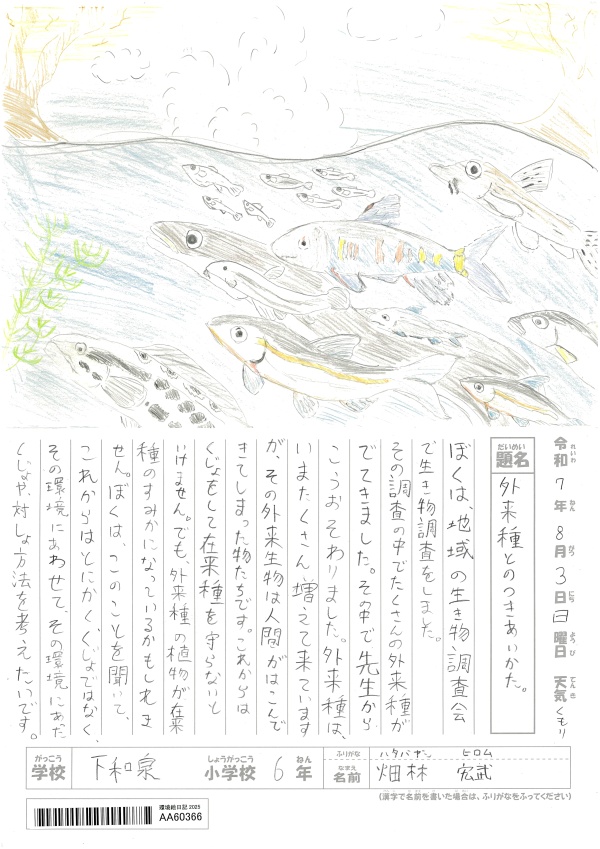 令和7年8月3日日曜日 天気くもり
れいわ ねん がつ にち ようび てんき
だいめい
題名
外来種とのつきあいかた。
ぼくは、地域の生き物調査会
で生き物調査をしました。
その調査の中でたくさんの外来種が
でてきました。その中で先生から
こうおそわりました。外来種は、
いまたくさん増えて来ています
が、その外来生物は人間がはこんで
きてしまった物たちです。これからは
くじょもして在来種を守らないと
いけません。でも、外来種の植物が在来
種のすみかになっているかもしれま
せん。ぼくは、このことを聞いて、
これからはとにかく、くじょではなく、
その環境にあわせて、その環境にあた
くじょや、対しょ方法を考えたいです。
がっこう
学校
下和泉
しょうがっこう
小学校
6
ねん
年
ふりがな
ハタバヤシ ヒロム
なまえ
名前
畑林 宏武
(漢字で名前を書いた場合は、ふりがなをふってください)
環境絵日記 2025
AA60366